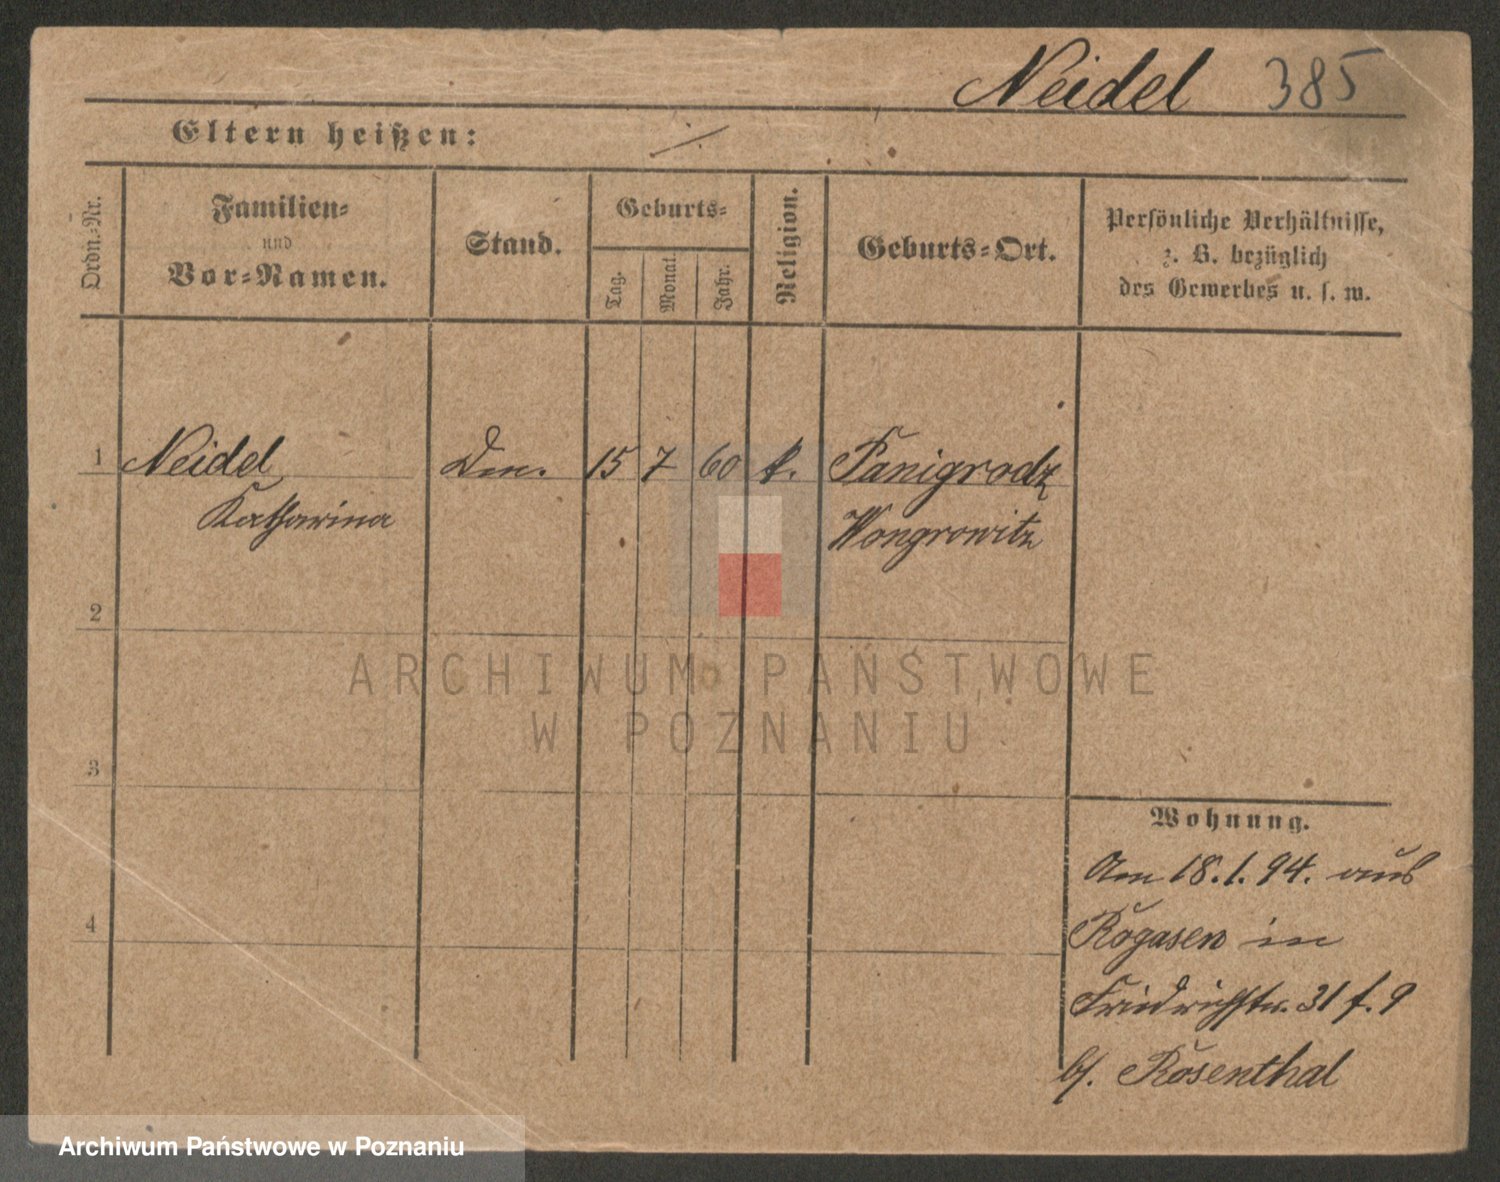 Neidel 385
Eltern heißen: ⁒
Ordn.-Nr.
Familien-
und
Vor-Namen.
Stand.
Geburts-
Tag.
Monat.
Jahr.
Religion.
Geburts-Ort.
Persönliche Verhältnisse,
z. B. bezüglich
des Gewerbes u. s. w.
1 Neidel 15 7 60 k. Panigrodz
Katharina Wongrowitz
2
3
4
Wohnung.
Am 18.1.94. aus
Rogasen in
Friedrichstr. 31 f. 9
b/. Rosenthal
ARCHIWUM PAŃSTWOWE
W POZNANIU
Archiwum Państwowe w Poznaniu